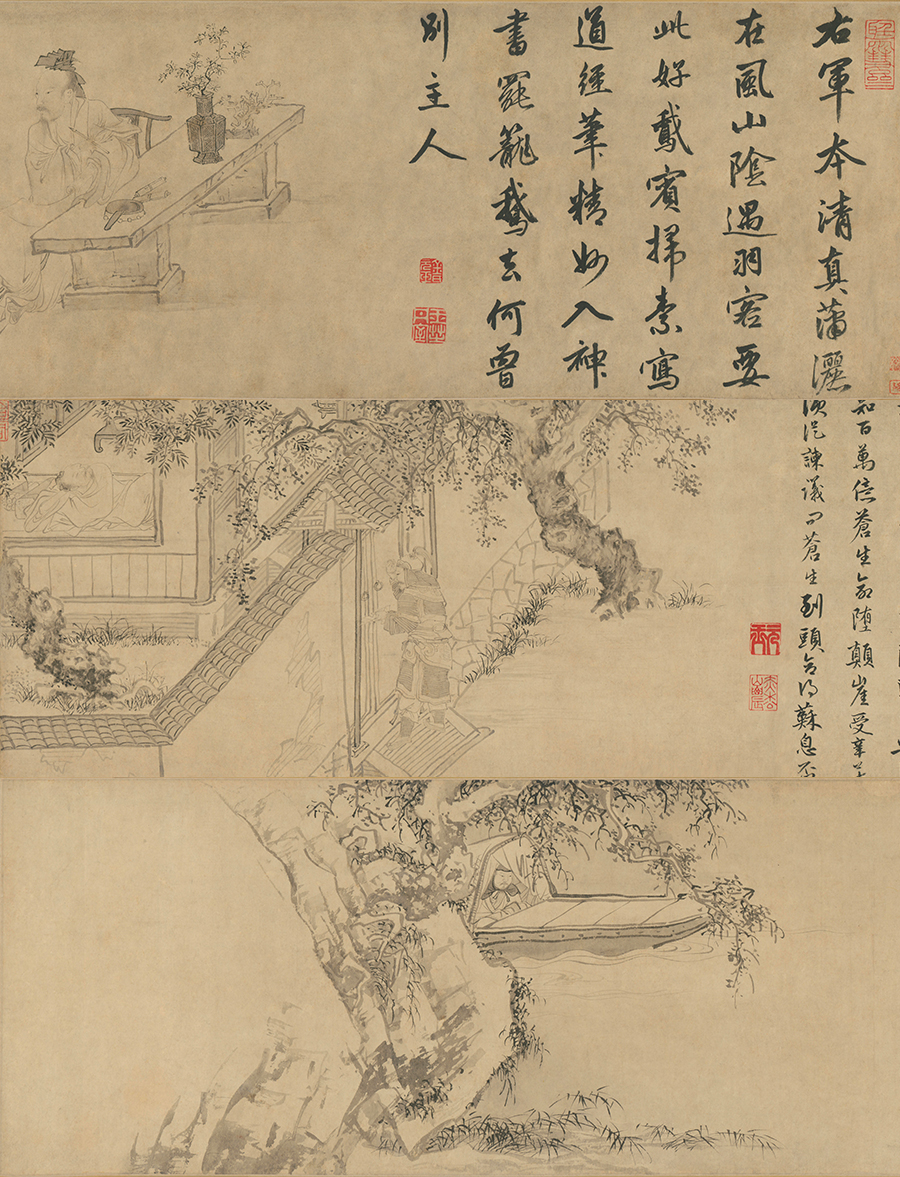 右軍本清真蕭灑
在風山陰遇羽客要
此好鵞賓掃素寫
道經筆精妙入神
書罷籠鵝去何曾
別主人
知百萬億蒼生命墮顛崖受辛苦
便從諫議問蒼生到頭合得蘇息否